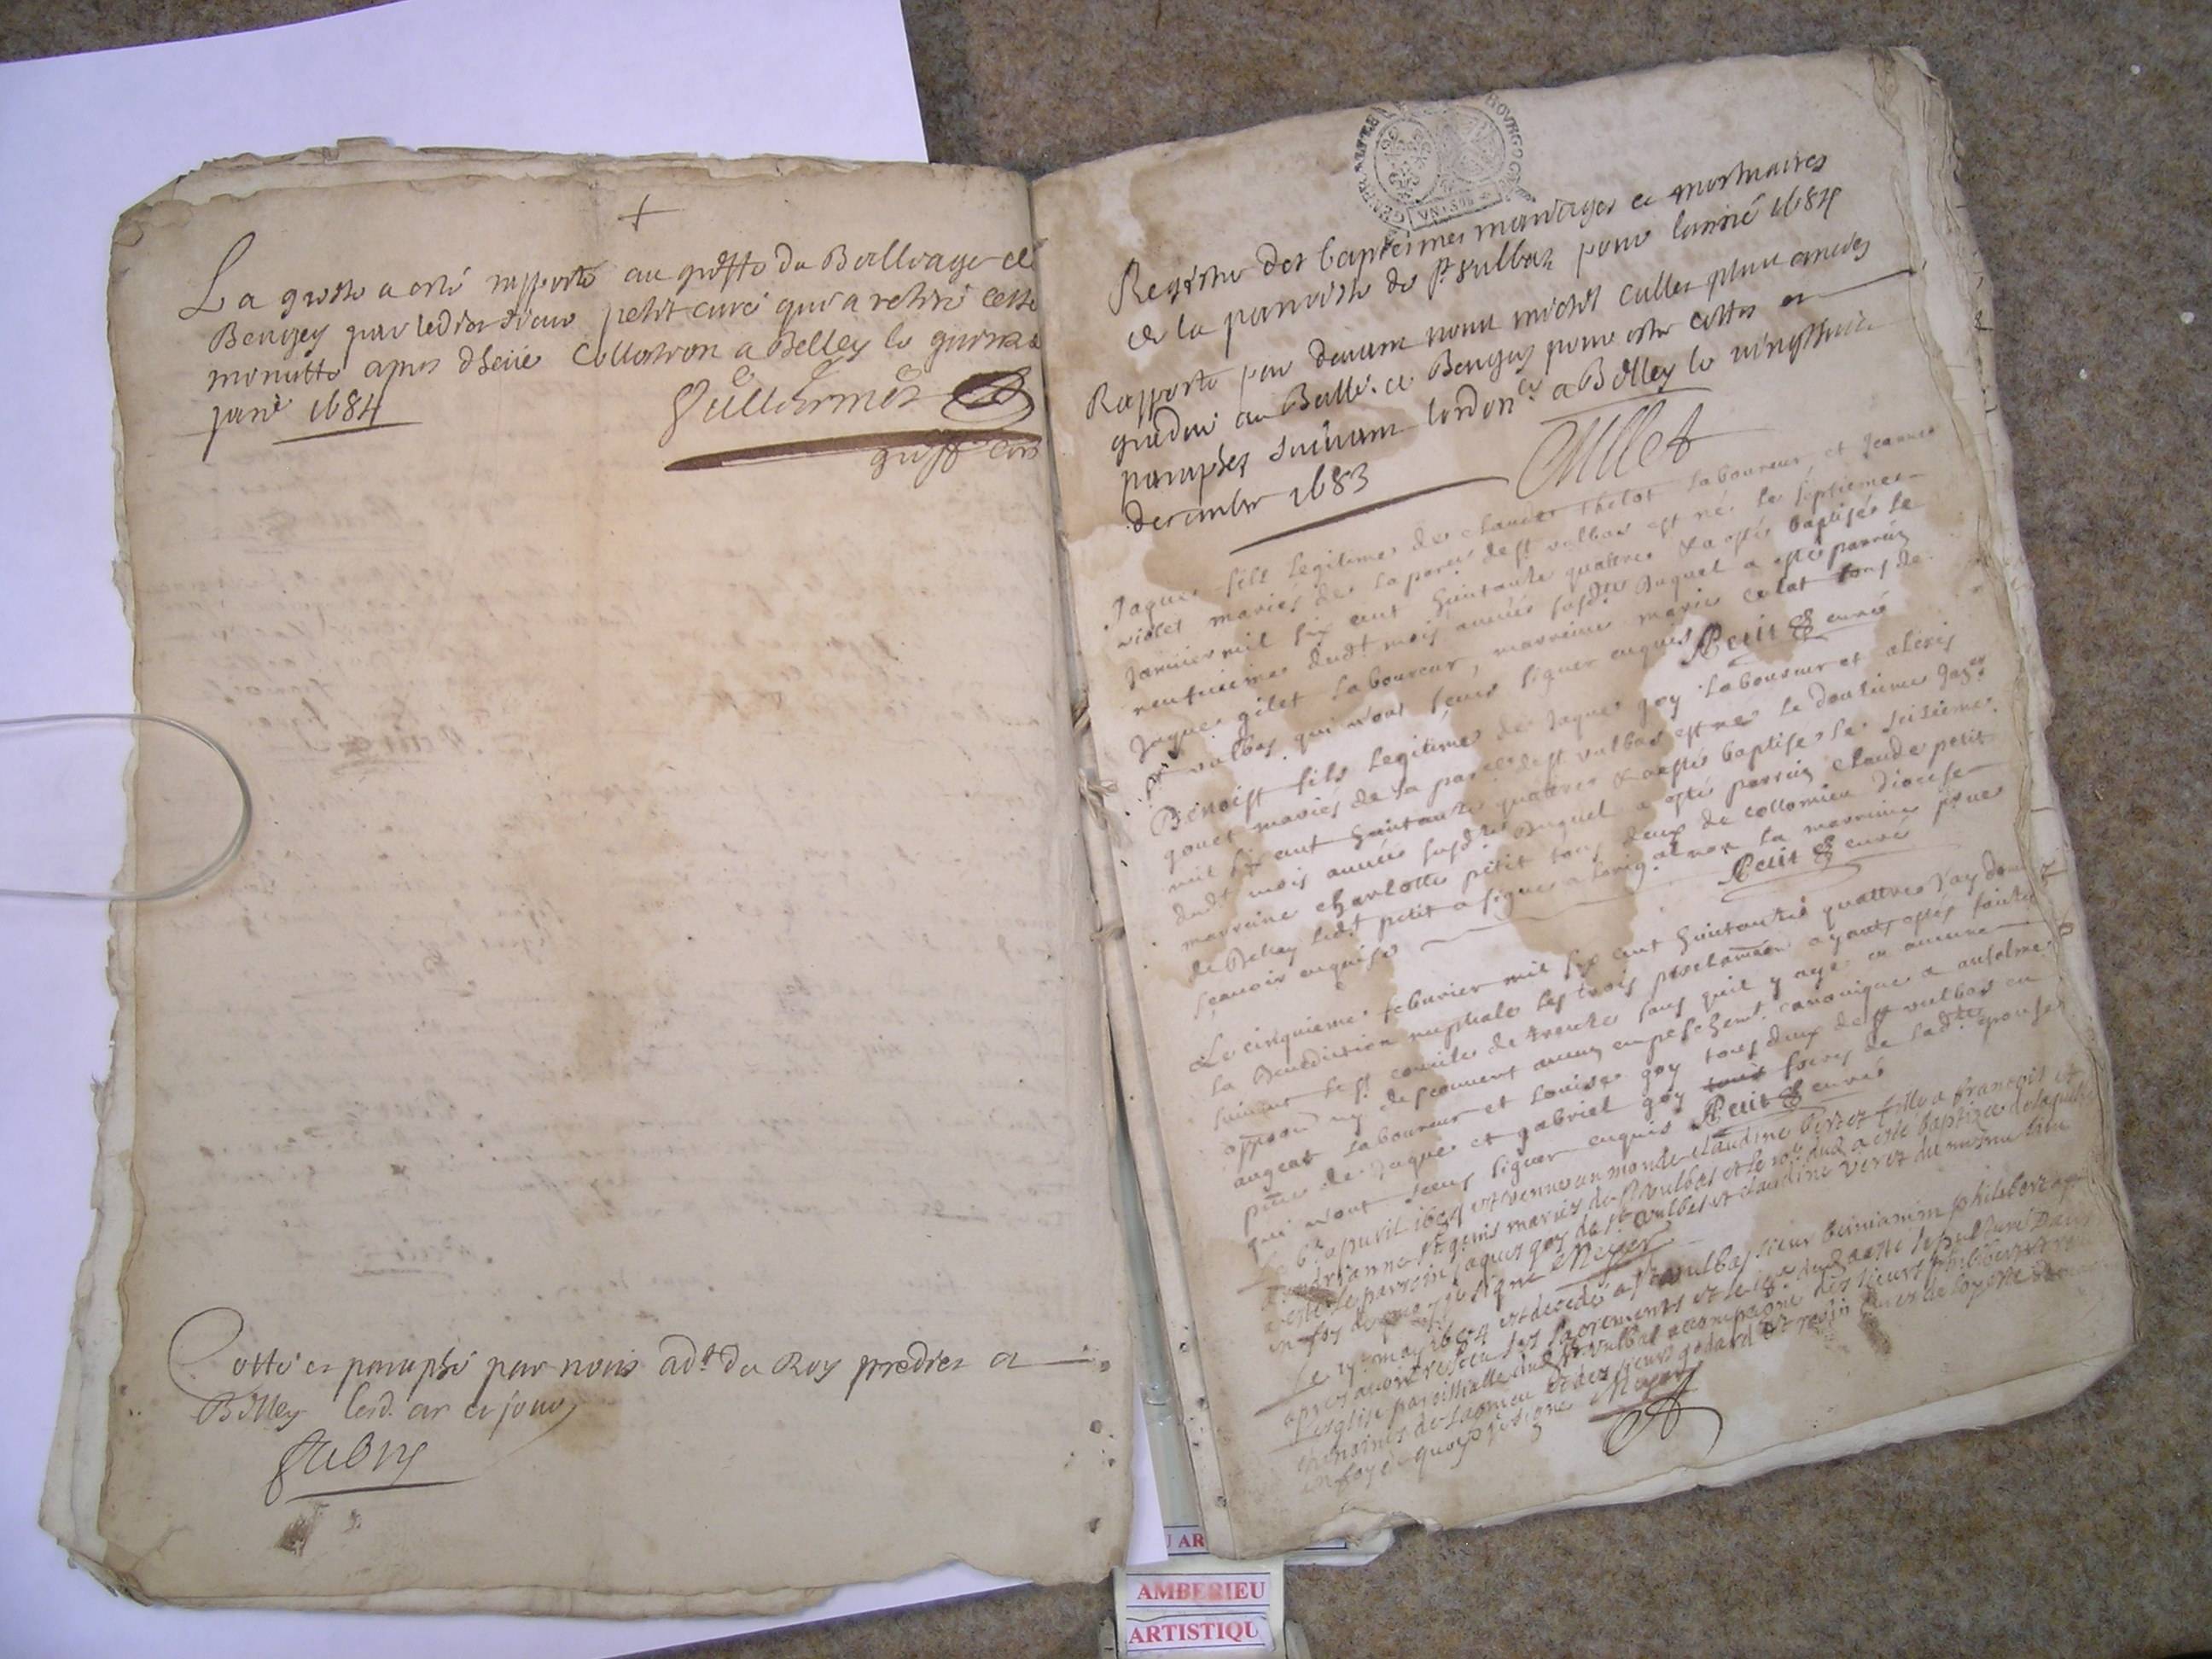 La grosse a esté rapporté au greffe du Bailliage de
Beugey par led. sieur petit curé qui a retiré cette
minutte apres dheüe Collation a Belley le quinze
janv 1684
Guilliermet
greff comis
Cotté et paraphé par nous adt du Roy predict a
Belley lesd. an et jour
fabry
GENER
BOVRGOGNE
Registre des baptesmes mariages et mortuaires
de la parroisse de St Vulbaz pour lanné 1684
Rapporté par devant nous michel Cullet plus ancien
gradué au Baill. de Beugey pour estre cottes et
paraphes suivant lordonce a Belley le vingthuict
decembre 1683
Cullet
Jaques fils legitime de claude thelot laboureur, et Jeanne
violet mariés de la paroise de st vulbas est né le septieme
Janvier mil six cent huictante quattre & a esté baptisé le
neufuieme dudt mois année susdte duquel a esté parrain
Jaques gilet laboureur, marreine marie colat tous de
st vulbas qui n'ont sceus signer enquis Petit curé
Benoist fils legitime de Jaques goy laboureur et alexis
gouet mariés de la paroise de st vulbas est né le douzieme Janer
mil six cent huictante quattre & a esté baptisé le seizieme
dudt mois année susdte duquel a esté parrain claude petit
marreine charlotte petit tous deux de collomieu diocese
de Belley ledt petit a signé a lorigal non la marreine pour ne
scauoir enquise Petit curé
Le cinquieme feburier mil six cent huictante quattre j'ay donné
la Benediction nuptiale les trois proclamaon ayants estés faictes
suiuant le st concile de trente sans quil y aye eu aucune
oppoon ny descouuert aucun empeschemt canonique a anselme
augeat laboureur et Louise goy tous deux de st vulbas en
pnce de Jaques et gabriel goy tous freres de ladte epouse
qui n'ont sceus signer enquis Petit curé
Le 6e apuril 1684 est venue au monde claudine verzet fille a francois et
andrianne st genis mariés de st vulbas et le 10e dud a esté baptizée de laquelle
a esté le parroin jaques goy de st vulbas et claudine verez du mesme lieu
en foy de quoy je signé Meyer
Le 17e may 1684 est decedé a st vulbas sieur beniamin philibert
apres auoir receu les sacrements et le 18e dud a esté sepulturé dans
l'esglise paroissialle dud st vulbas accompagné des sieurs philibert
chanoines de lagnieu et des sieurs godard et curés de loyette
en foy de quoy je signé Meyer
AMBERIEU
ARTISTIQU